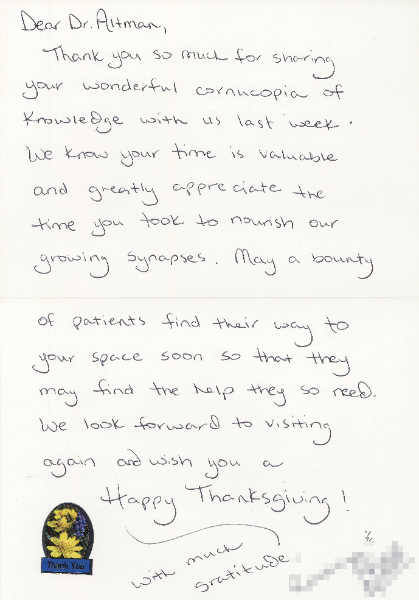 Dear Dr. Altman,
Thank you so much for sharing
your wonderful cornucopia of
knowledge with us last week.
We know your time is valuable
and greatly appreciate the
time you took to nourish our
growing synapses. May a bounty
of patients find their way to
your space soon so that they
may find the help they so need.
We look forward to visiting
again and wish you a
Happy Thanksgiving!
Thank You
with much
gratitude